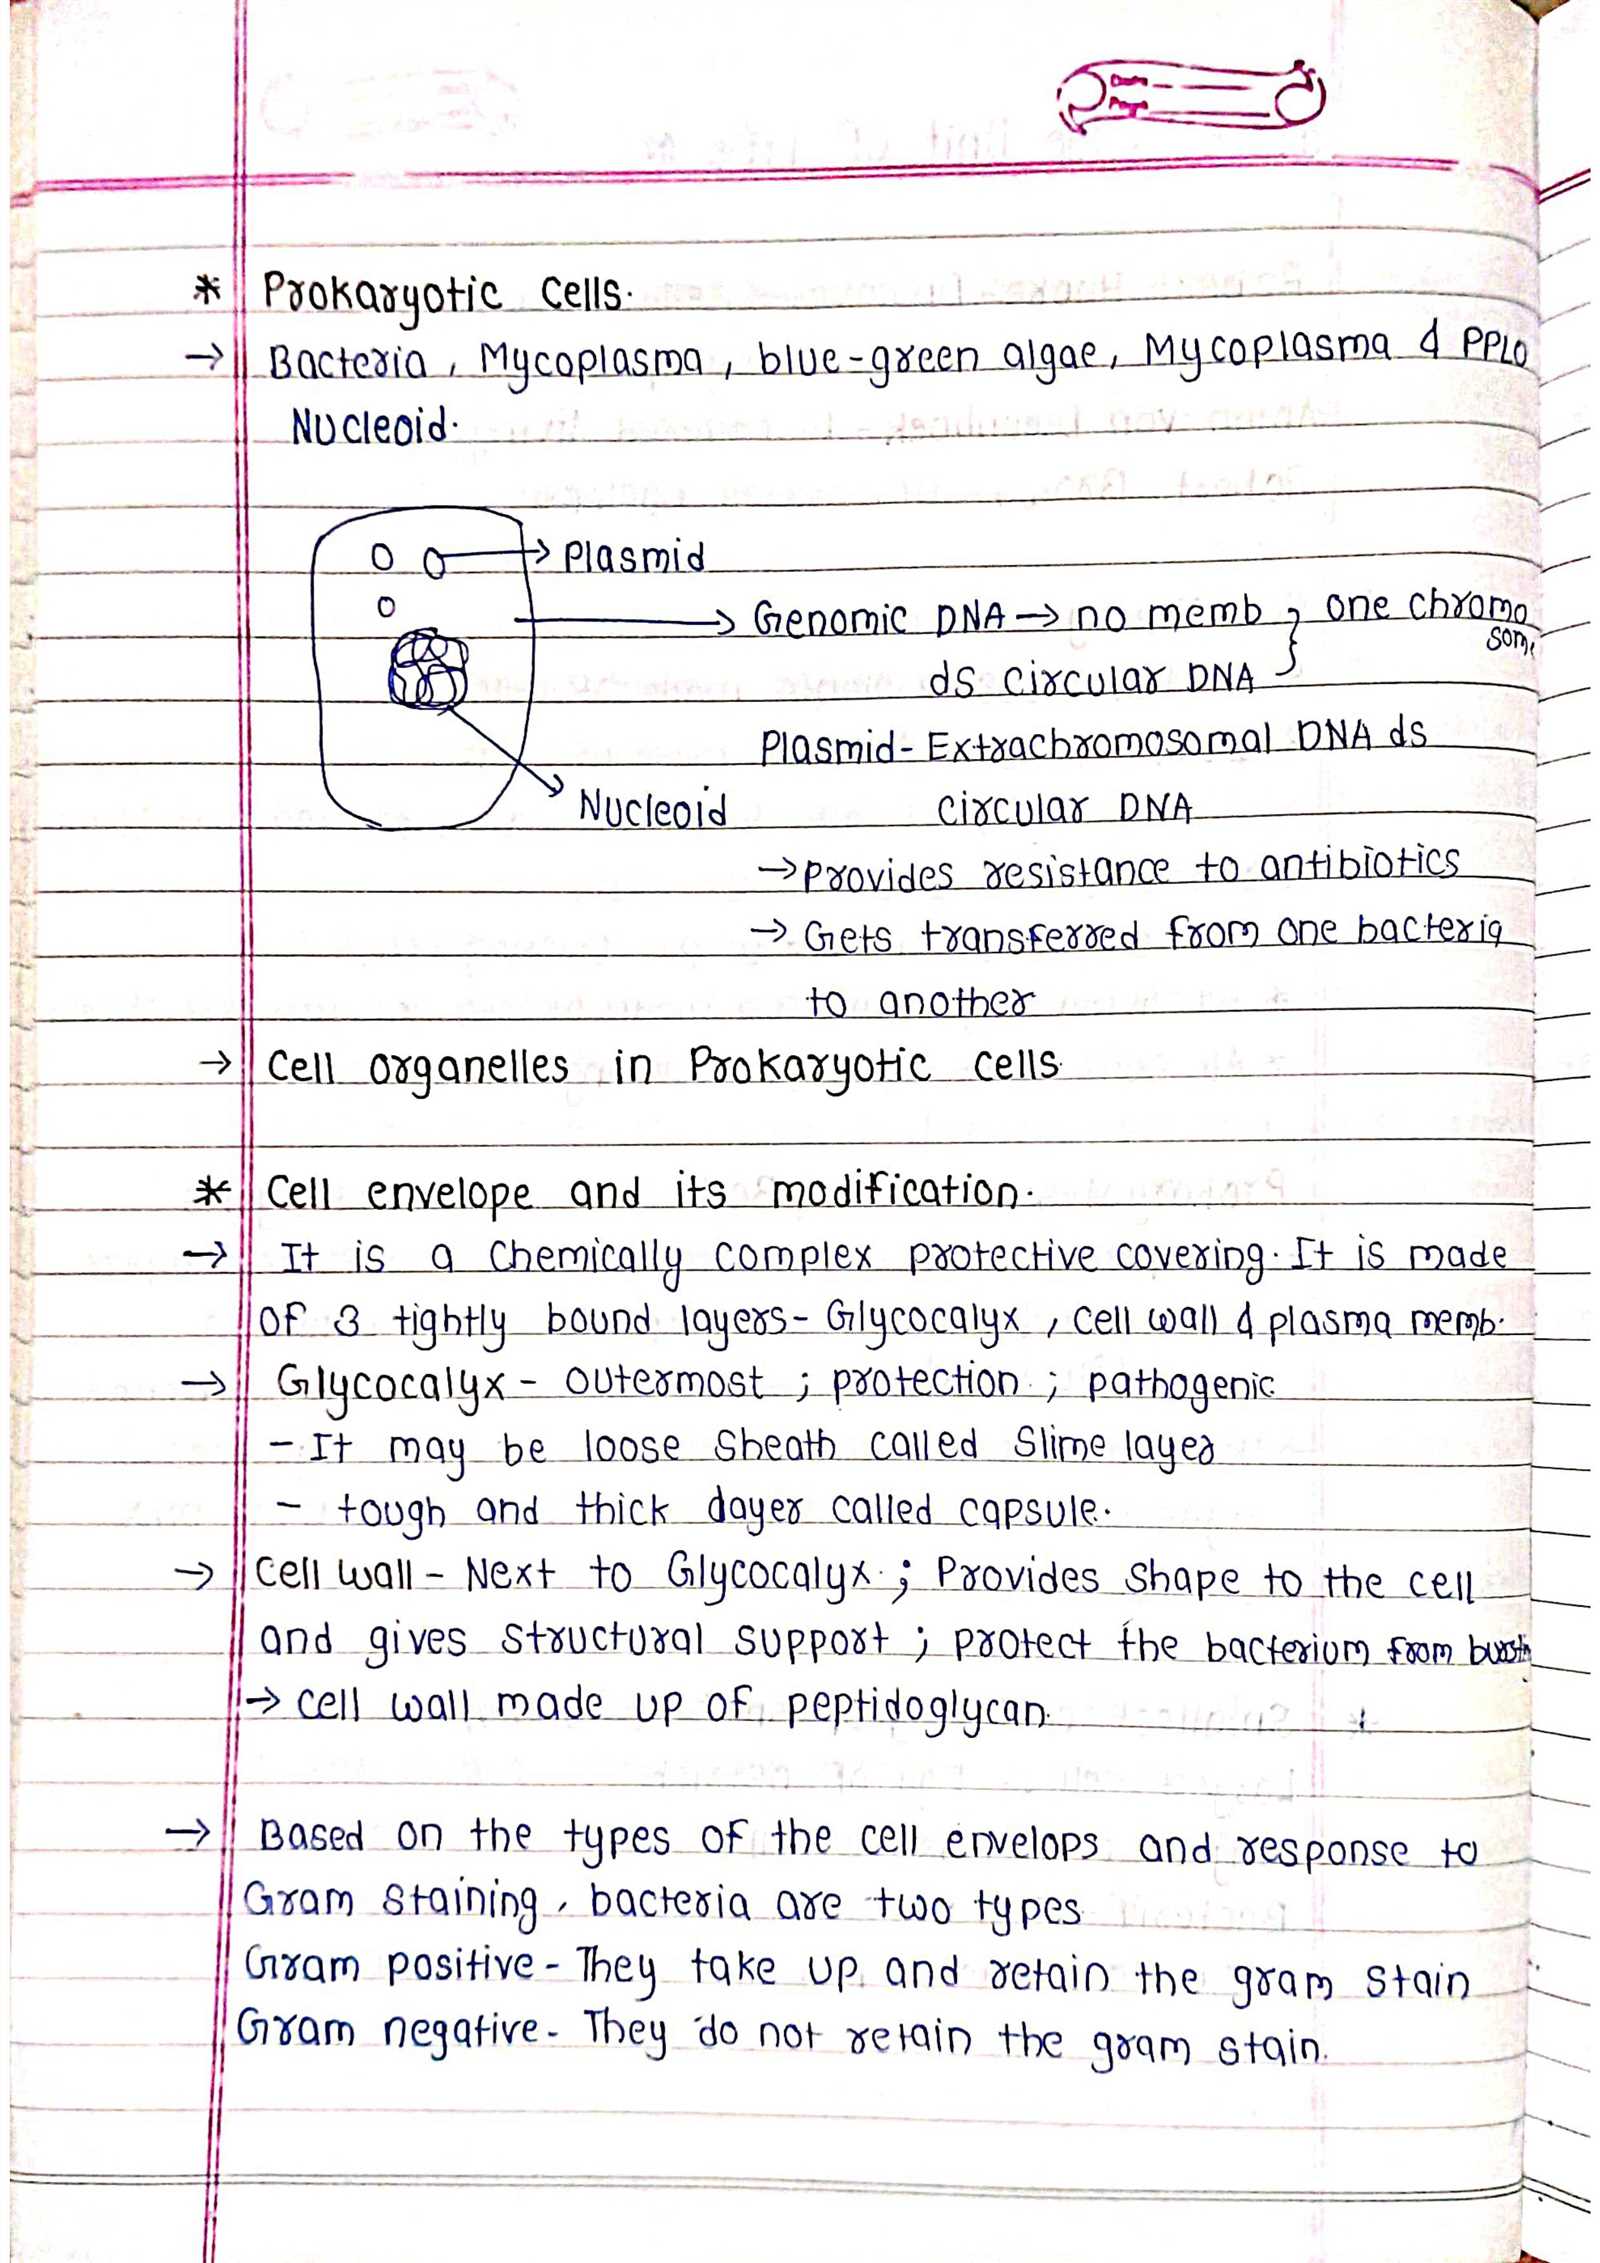 Date
Page
* Prokaryotic cells.
→ Bacteria, Mycoplasma, blue-green algae, Mycoplasma & PPLO
Nucleoid.
→ Plasmid
→ Genomic DNA → no memb } one chromo
some
ds circular DNA
Plasmid - Extrachromosomal DNA ds
→ Nucleoid
circular DNA
→ provides resistance to antibiotics
→ Gets transferred from one bacteria
to another
→ Cell organelles in Prokaryotic cells.
* Cell envelope and its modification.
→ It is a chemically complex protective covering. It is made
of 3 tightly bound layers - Glycocalyx, cell wall & plasma memb.
→ Glycocalyx - outermost ; protection ; pathogenic
- It may be loose sheath called slime layer
- tough and thick dayer called capsule.
→ Cell wall - Next to Glycocalyx ; Provides shape to the cell
and gives structural support ; protect the bacterium from
→ cell wall made up of peptidoglycan.
→ Based on the types of the cell envelops and response to
Gram staining, bacteria are two types
Gram positive - They take up and retain the gram stain
Gram negative - They do not retain the gram stain.